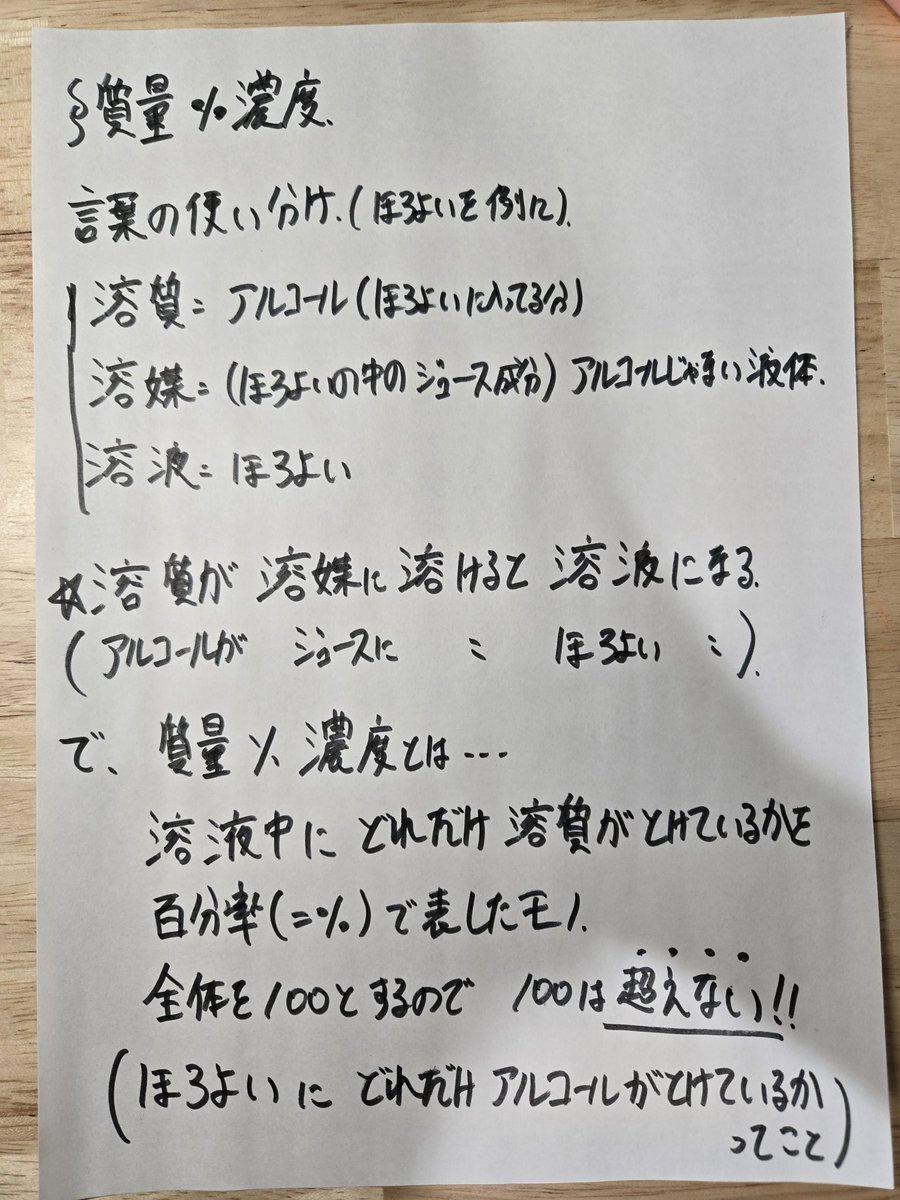 §質量%濃度.
言葉の使い分け.(ほろよいを例に).
溶質=アルコール(ほろよいに入ってる分)
溶媒=(ほろよいの中のジュース成分)アルコールじゃない液体.
溶液=ほろよい
☆溶質が溶媒に溶けると溶液になる.
(アルコールが ジュースに 〃 ほろよい 〃).
で、質量%濃度とは…
溶液中にどれだけ溶質がとけているかを
百分率(=%)で表したモノ.
全体を100とするので 100は超えない!!
(ほろよいにどれだけアルコールがとけているか
ってこと)